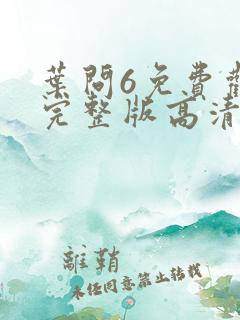 葉問6免費
完整版高清
離鞘
未经同意禁止转载